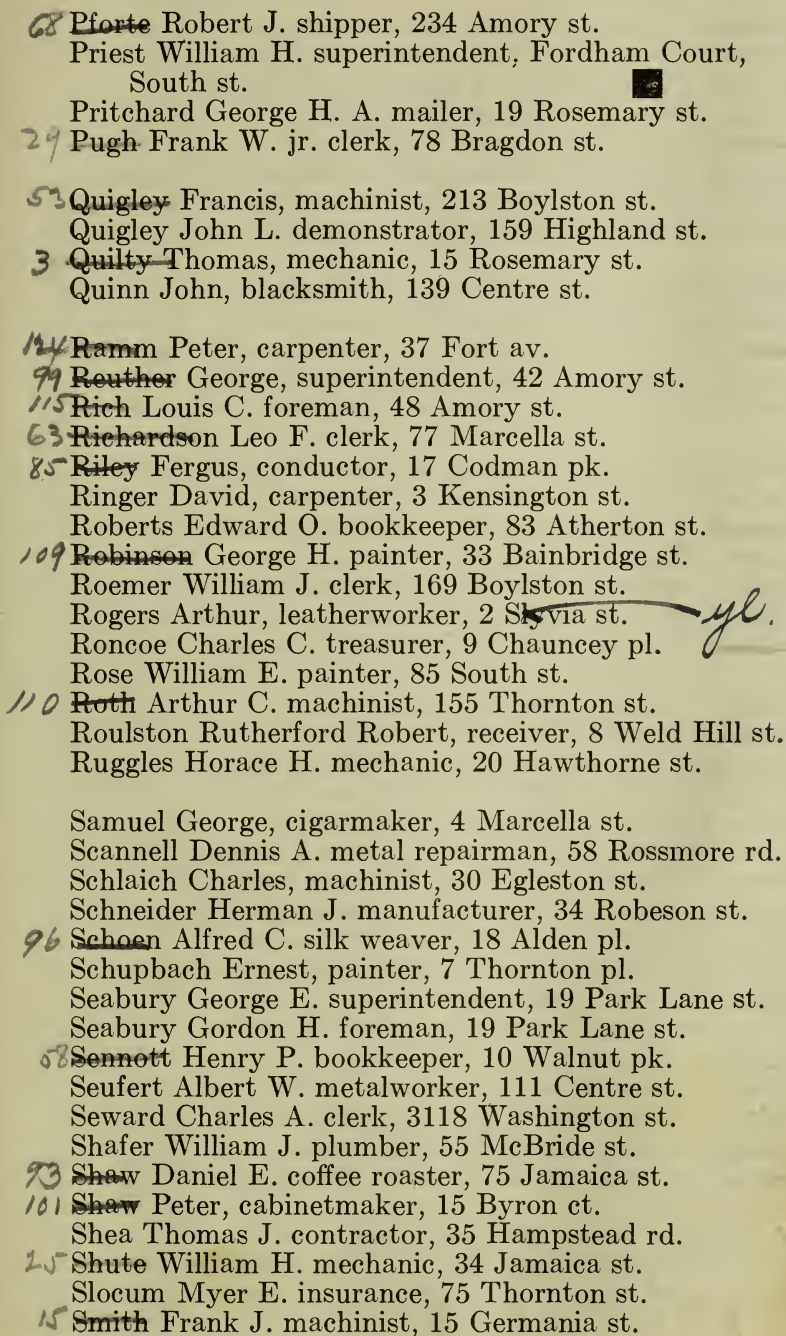 68 Pforte Robert J. shipper, 234 Amory st.
Priest William H. superintendent, Fordham Court,
South st.
Pritchard George H. A. mailer, 19 Rosemary st.
Pugh Frank W. jr. clerk, 78 Bragdon st.
53 Quigley Francis, machinist, 213 Boylston st.
Quigley John L. demonstrator, 159 Highland st.
3 Quilty Thomas, mechanic, 15 Rosemary st.
Quinn John, blacksmith, 139 Centre st.
Ramm Peter, carpenter, 37 Fort av.
99 Reuther George, superintendent, 42 Amory st.
115 Rich Louis C. foreman, 48 Amory st.
63 Richardson Leo F. clerk, 77 Marcella st.
85 Riley Fergus, conductor, 17 Codman pk.
Ringer David, carpenter, 3 Kensington st.
Roberts Edward O. bookkeeper, 83 Atherton st.
109 Robinson George H. painter, 33 Bainbridge st.
Roemer William J. clerk, 169 Boylston st.
Rogers Arthur, leatherworker, 2 Slyvia st. yl.
Roncoe Charles C. treasurer, 9 Chauncey pl.
Rose William E. painter, 85 South st.
110 Roth Arthur C. machinist, 155 Thornton st.
Roulston Rutherford Robert, receiver, 8 Weld Hill st.
Ruggles Horace H. mechanic, 20 Hawthorne st.
Samuel George, cigarmaker, 4 Marcella st.
Scannell Dennis A. metal repairman, 58 Rossmore rd.
Schlaich Charles, machinist, 30 Egleston st.
Schneider Herman J. manufacturer, 34 Robeson st.
96 Schoen Alfred C. silk weaver, 18 Alden pl.
Schupbach Ernest, painter, 7 Thornton pl.
Seabury George E. superintendent, 19 Park Lane st.
Seabury Gordon H. foreman, 19 Park Lane st.
58 Sennott Henry P. bookkeeper, 10 Walnut pk.
Seufert Albert W. metalworker, 111 Centre st.
Seward Charles A. clerk, 3118 Washington st.
Shafer William J. plumber, 55 McBride st.
Shaw Daniel E. coffee roaster, 75 Jamaica st.
101 Shaw Peter, cabinetmaker, 15 Byron ct.
Shea Thomas J. contractor, 35 Hampstead rd.
25 Shute William H. mechanic, 34 Jamaica st.
Slocum Myer E. insurance, 75 Thornton st.
15 Smith Frank J. machinist, 15 Germania st.